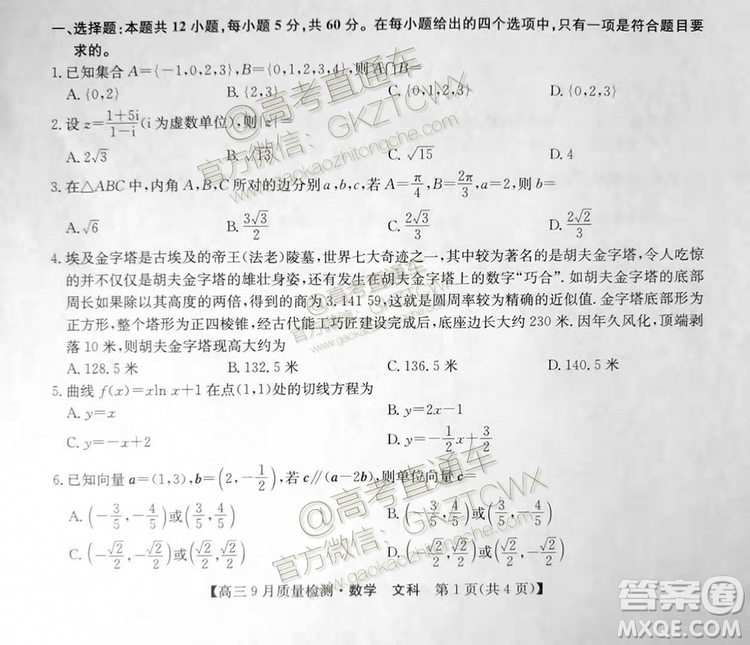 一、选择题:本题共 12 小题,每小题 5 分,共 60 分。在每小题给出的四个选项中,只有一项是符合题目要
求的。
1. 已知集合 A={-1,0,2,3},B={0,2,3,4},则 A∩B=
A. {0,2} B. {0,2,3} C. {0,1,2,3} D. {0,2,3,4}
2. 设 z=\frac{1+5i}{1-i}(i 为虚数单位),则 |z|=
A. 2√3 B. √13 C. √15 D. 4
3. 在△ABC 中,内角 A,B,C 所对的边分别 a,b,c,若 A=\frac{π}{4},B=\frac{2π}{3},a=,则 b=
A. √6 B. \frac{3√3}{2} C. 3√3 D. \frac{2√2}{3}
4. 埃及金字塔是古埃及的帝王(法老)陵墓,世界七大奇迹之一,其中较为著名的是胡夫金字塔,令人吃惊
的并不仅仅是胡夫金字塔的雄壮身姿,还有发生在胡夫金字塔上的数字“巧合”。如胡夫金字塔的底部
周长如果除以其高度的两倍,得到的商为 3.141 59,这就是圆周率较为精确的近似值。金字塔底部形为
正方形,整个塔形为正四棱锥,经古代能工巧匠建设完成后,底座边长大约 230 米。因年久风化,顶端剥
落 10 米,则胡夫金字塔现高大约为
A. 128.5 米 B. 132.5 米 C. 136.5 米 D. 140.5 米
5. 曲线 f(x)=xln x+1 在点(1,1)处的切线方程为
A. y=x B. y=2x-1
C. y=-x+2 D. y=-\frac{1}{2}x+\frac{3}{2}
6. 已知向量 a=(1,3),b=(2,-\frac{1}{2}),若 c∥(a-2b),则单位向量 c=
A. (-\frac{3}{5},-\frac{4}{5})或(\frac{3}{5},\frac{4}{5}) B. (-\frac{3}{5},\frac{4}{5})或(\frac{3}{5},-\frac{4}{5})
C. (-\frac{√2}{2},-\frac{√2}{2})或(\frac{√2}{2},\frac{√2}{2}) D. (-\frac{√2}{2},\frac{√2}{2})或(\frac{√2}{2},-\frac{√2}{2})
【高三 9 月质量检测·数学 文科 第 1 页(共 4 页)】
@高考直通车
官方微信:GKZTCWX
www.gaokaozhitongche.com
@高考直通车
官方微信:GKZTCWX
www.gaokaozhitongche.com
答案圈
MXQE.COM